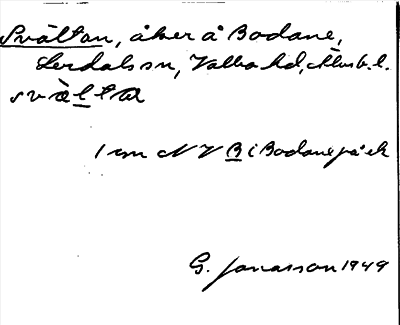 Svältan, åker å Bodane,
Lerdals sn, Valbo hd, Älvsb. l.
svälta
1 cm NV B i Bodane på ek
G. Jonasson 1949